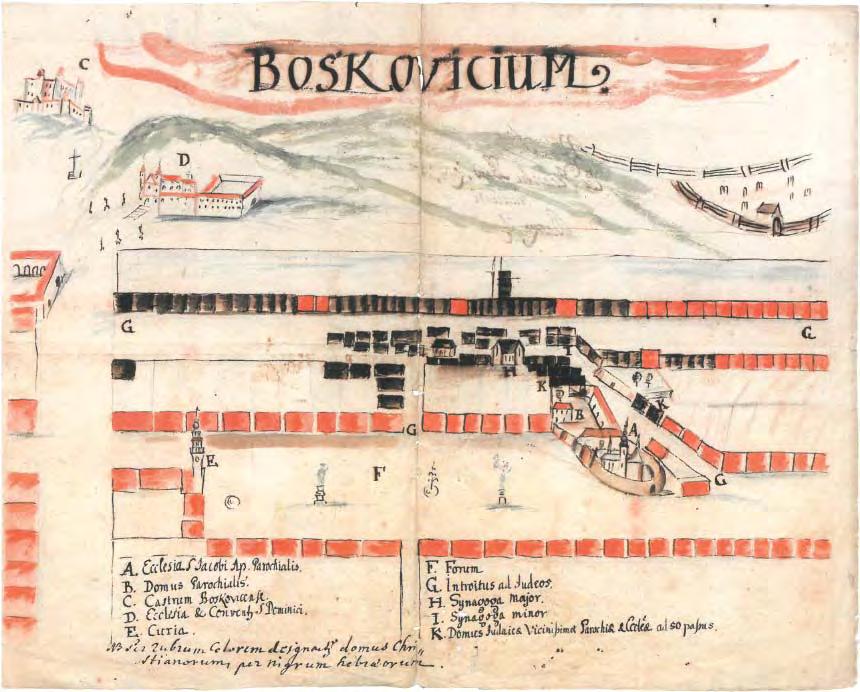 BOSKOVICIUM.
C
D
G
G
I
H
K
K
B
A
G
G
E
F
A. Ecclesia S Jacobi Ap. Parochialis.
B. Domus Parochialis.
C. Castrum Boskovicense.
D. Ecclesia & Convents S Dominici.
E. Curia.
F. Forum
G. Introitus ad Judeos.
H. Synagoga major.
I. Synagoga minor
K. Domus Judaica Parochiæ & ad 50 passus.
NB Per rubrum Colorem designatz domus Chri
stianorum, per nigrum hebræorum.